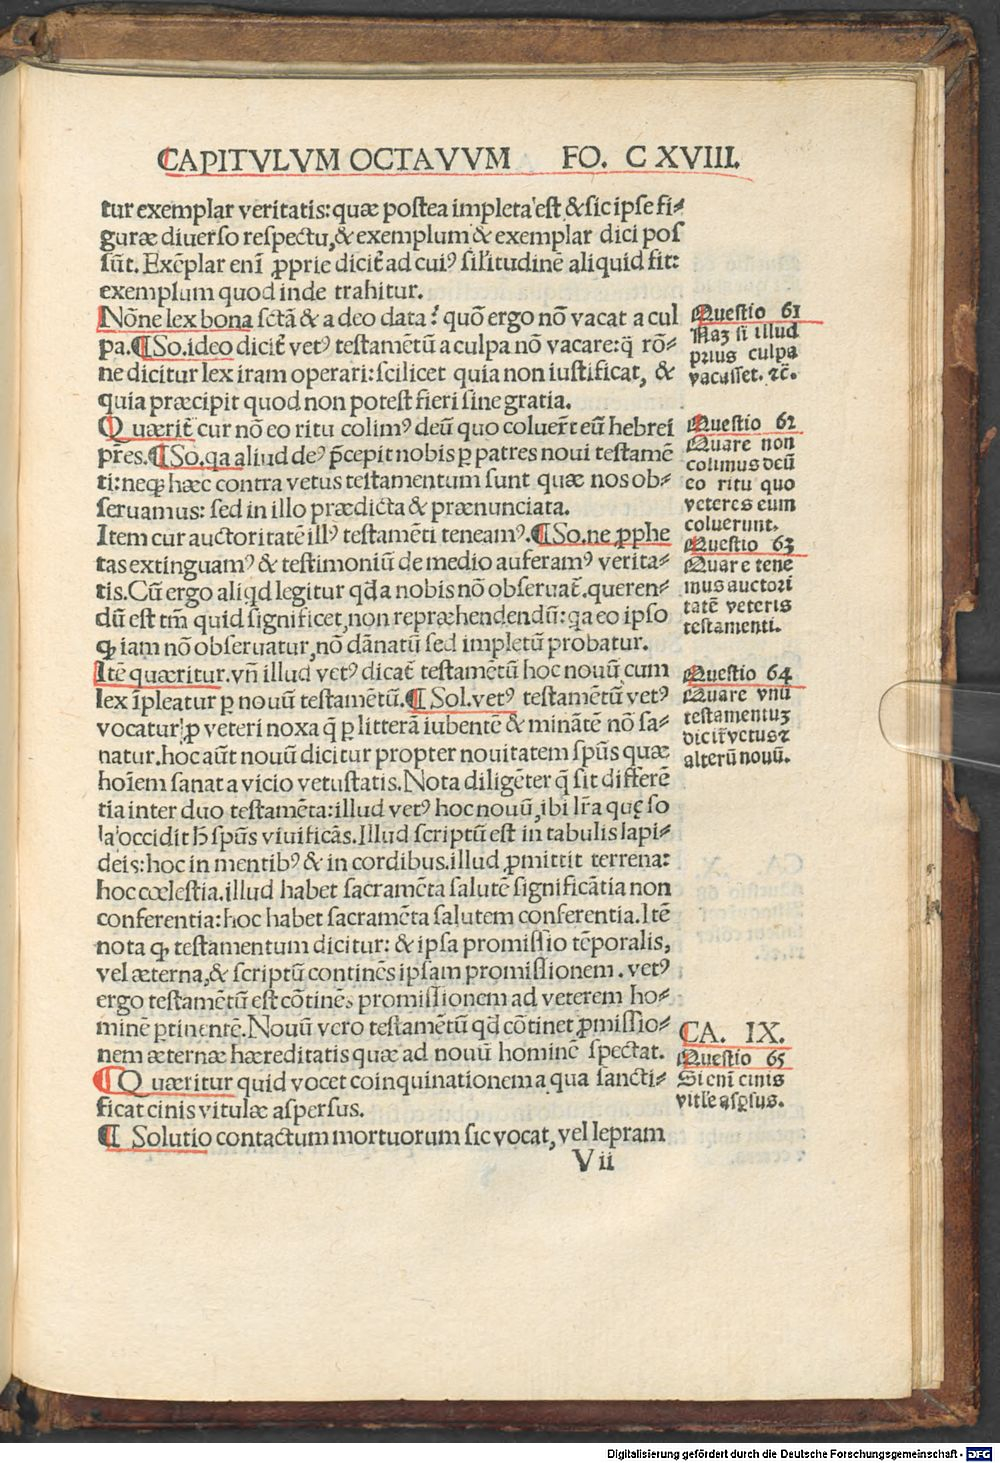 CAPITVLVM OCTAVVM FO. C XVIII.
tur exemplar veritatis: quæ postea impleta est & sic ipse fi⸗
guræ diuerso respectu, & exemplum & exemplar dici pos
sũt. Exẽplar enĩ ꝓprie dicit̃ ad cuiꝰ silʼitudinẽ aliquid fit:
exemplum quod inde trahitur.
Nõne lex bona sctã & a deo data? quõ ergo nõ vacat a cul
pa. ¶ So. ideo dicit̃ vetꝰ testamẽtũ a culpa nõ vacare: q̃ rõ⸗
ne dicitur lex iram operari: scilicet quia non iustificat, &
quia præcipit quod non potest fieri sine gratia.
Quærit̃ cur nõ eo ritu colimꝰ deũ quo coluer̃t eũ hebrei
p̃res. ¶ So. qa aliud deꝰ p̃cepit nobis ꝑ patres noui testamẽ
ti: neqꝫ hæc contra vetus testamentum sunt quæ nos ob⸗
seruamus: sed in illo prædicta & prænunciata.
Item cur auctoritatẽ illꝰ testamẽti teneamꝰ. ¶ So. ne ꝓphe
tas extinguamꝰ & testimoniũ de medio auferamꝰ verita⸗
tis. Cũ ergo aliqd legitur qd̃ a nobis nõ obseruat̃. queren⸗
dũ est tm̃ quid significet, non repræhendendũ: qa eo ipso
ꝙ iam nõ obseruatur, nõ dãnatũ sed impletũ probatur.
Itẽ quæritur. vñ illud vetꝰ dicat̃ testamẽtũ hoc nouũ cum
lex ĩpleatur ꝑ nouũ testamẽtũ. ¶ Sol. vetꝰ testamẽtũ vetꝰ
vocatur ꝓ veteri noxa q̃ ꝑ litterã iubentẽ & minãtẽ nõ sa⸗
natur. hoc aũt nouũ dicitur propter nouitatem spũs quæ
hoĩem sanat a vicio vetustatis. Nota diligẽter q̃ sit differẽ
tia inter duo testamẽta: illud vetꝰ hoc nouũ, ibi lr̃a quę so
la occidit h̃ spũs viuificãs. Illud scriptũ est in tabulis lapi⸗
deis: hoc in mentibꝰ & in cordibus. illud ꝓmittit terrena:
hoc cœlestia. illud habet sacramẽta salutẽ significãtia non
conferentia: hoc habet sacramẽta salutem conferentia. Itẽ
nota ꝙ testamentum dicitur: & ipsa promissio tẽporalis,
vel æterna, & scriptũ continẽs ipsam promissionem. vetꝰ
ergo testamẽtũ est cõtinẽs promissionem ad veterem ho⸗
minẽ ꝑtinentẽ. Nouũ vero testamẽtũ qd̃ cõtinet ꝓmissio⸗
nem æternæ hæreditatis quæ ad nouũ hominẽ spectat.
¶ Quæritur quid vocet coinquinationem a qua sancti⸗
ficat cinis vitulæ aspersus.
¶ Solutio contactum mortuorum sic vocat, vel lepram
V ii
Questio 61
Naꝫ si illud
prius culpa
vacasset. ⁊c̃.
Questio 62
Quare non
colimus deũ
eo ritu quo
veteres eum
coluerunt.
Questio 63
Quare tene
mus auctori
tatẽ veteris
testamenti.
Questio 64
Quare vnũ
testamentuꝫ
dicit̃ vetus ⁊
alterũ nouũ.
CA. IX.
Questio 65
Si enĩ cinis
vitle aspsus.
Digitalisierung gefördert durch die Deutsche Forschungsgemeinschaft - DFG